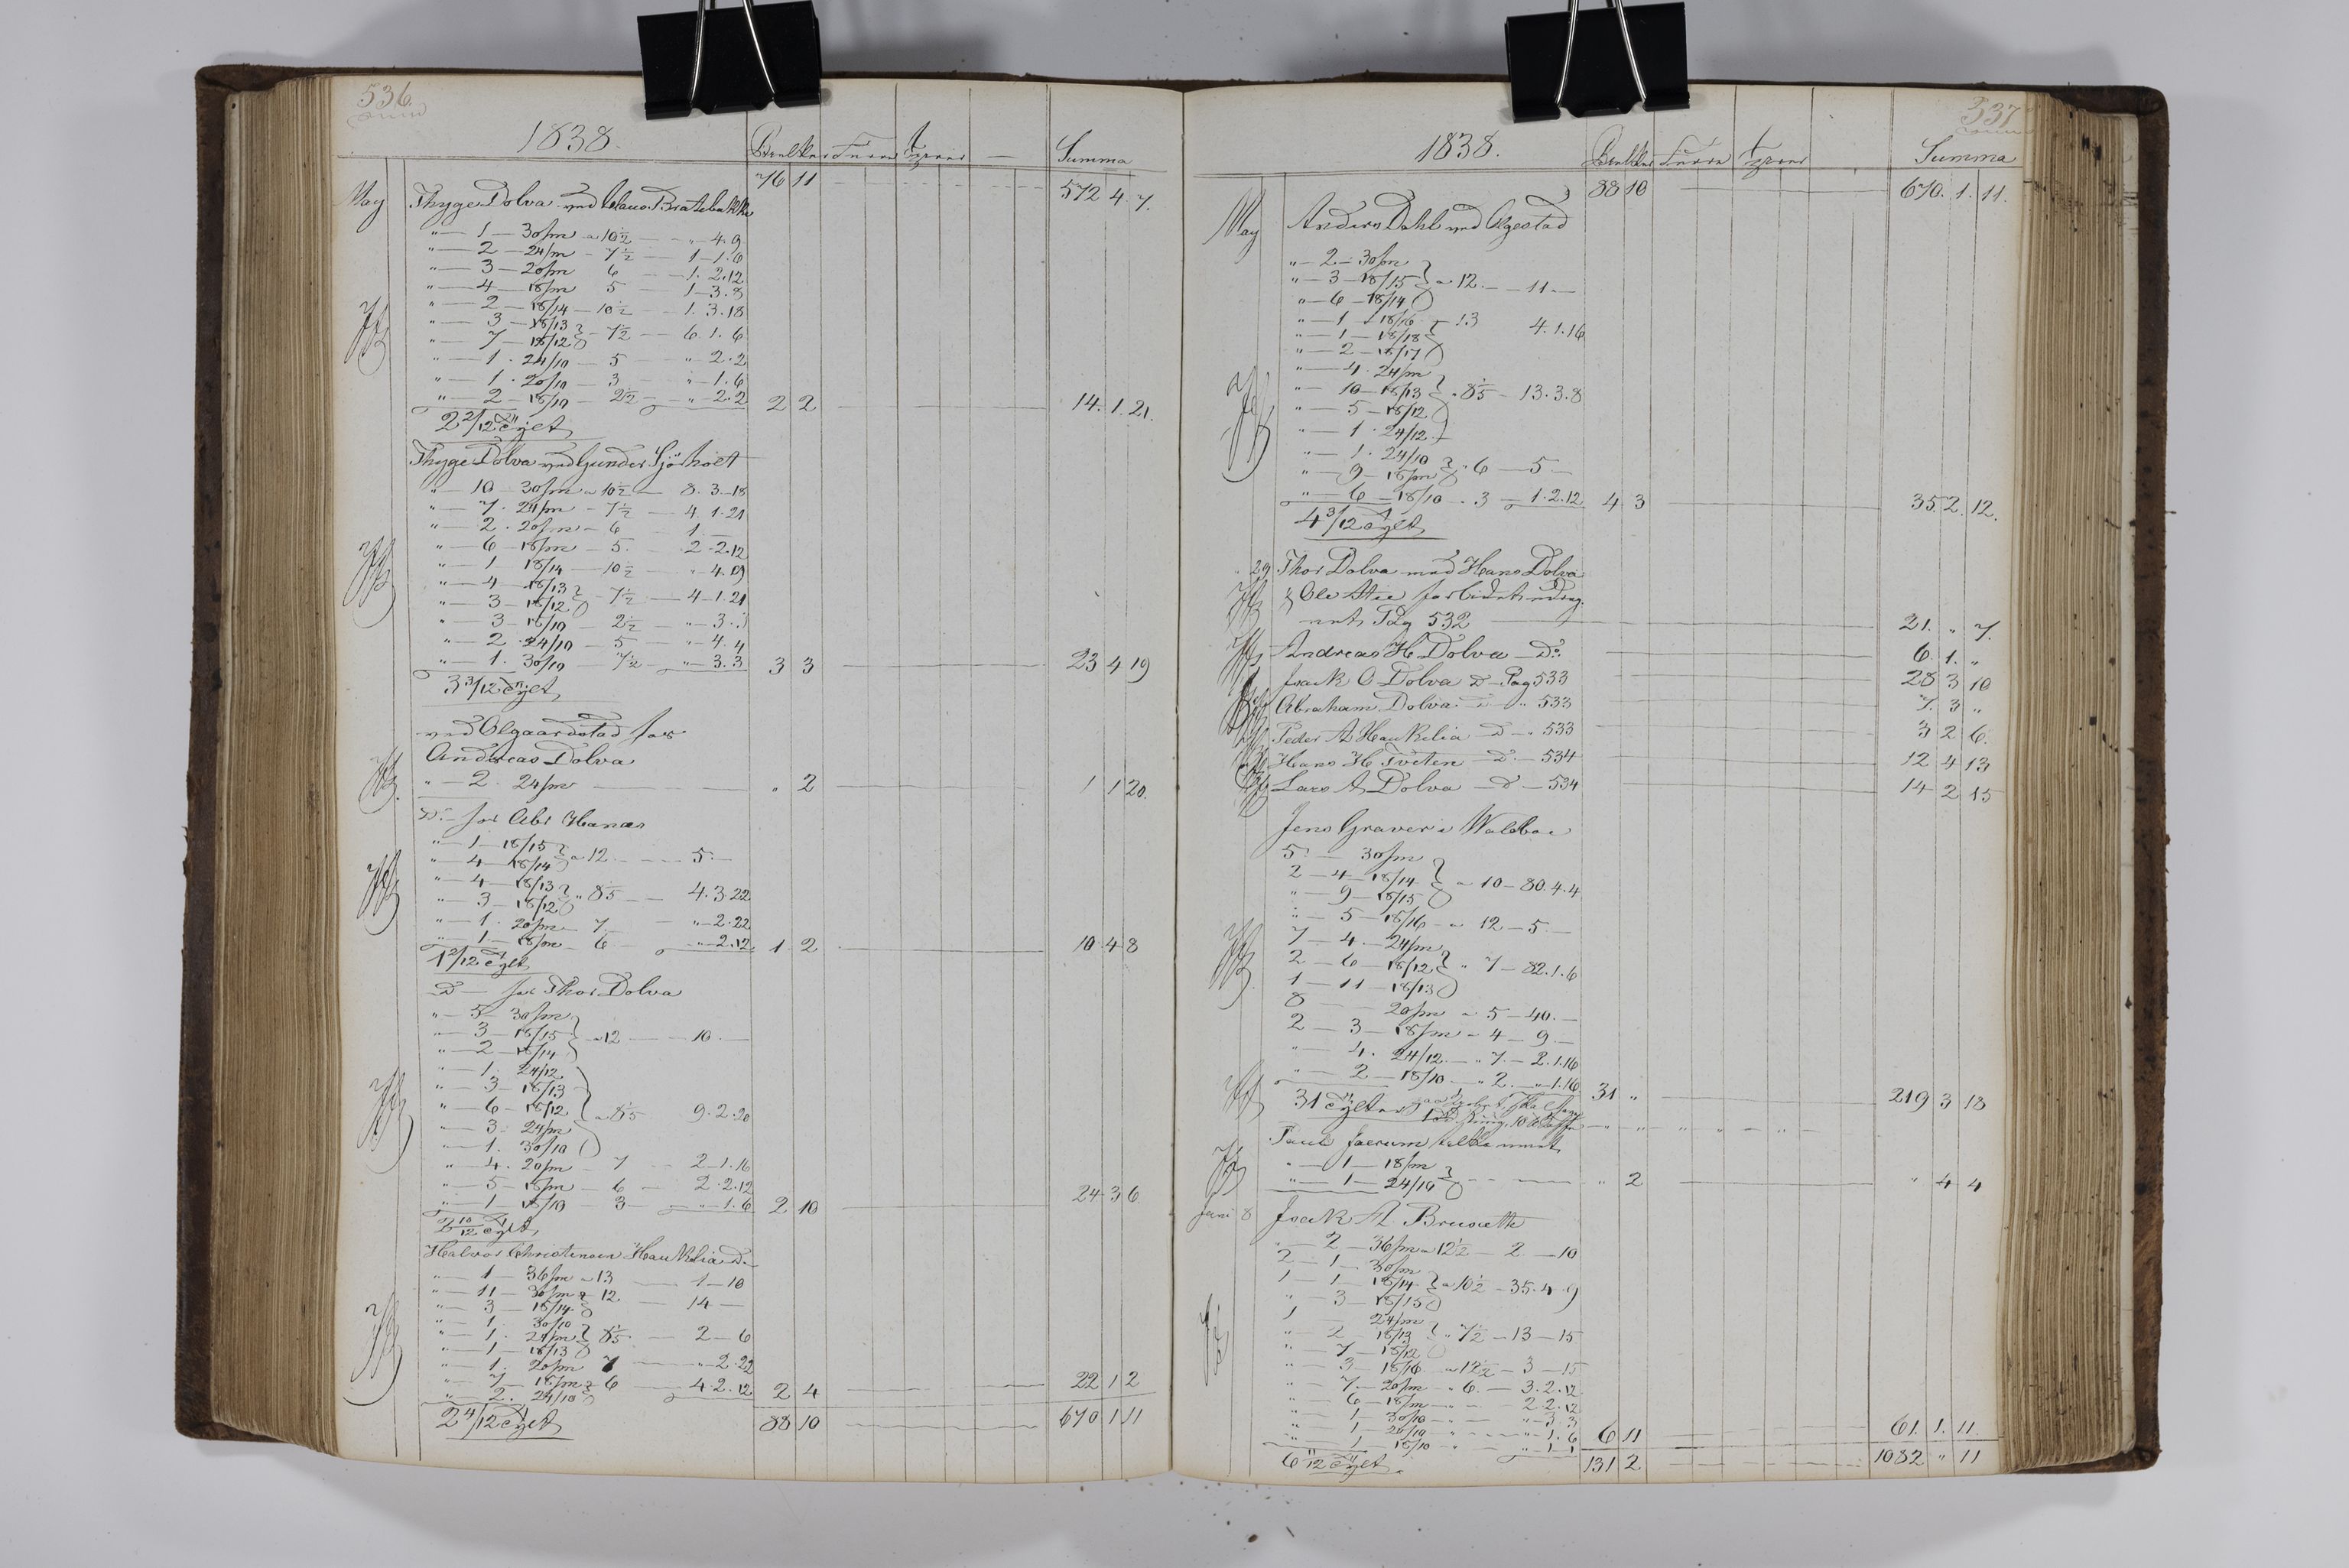 536
1838.
Summa
76 11 572 4 7.
May Thyge Dolva
" 1 - 30/m a 10½ - " 4. 9
" 2 - 24/m - 7½ - 1 - 1. 6
" 3 - 20/m 6 - 1. 2. 12
" 4 - 18/m 5 - 1 - 3. 8
" 2 - 18/14 - 10½ - 1. 3. 18
" 3 - 18/13
" 7 - 18/12 - 7½ - 6. 1. 6
" 1 . 24/10 - 5 " 2. 2
" 1 . 20/10 - 3 " 1. 6
" 2 - 18/10 - 2½ - " 2. 2 2 2 14. 1. 21.
2 2/12
Thyge Dolva ved Gunder
" 10 30/m a 10½ - 8. 3 - 18
" 7. 24/m - 7½ - 4. 1. 21
" 2 . 20/m - 6 1. -
" 6 - 18/m - 5. 2. 2. 12
" 1 18/14 - 10½ " 4. 19
" 4 - 18/13
" 3 - 18/12 - 7½ - 4 - 1. 21
" 3 - 18/10 - 2½ - " 3. 3
" 2 . 24/10 - 5 - " 4. 4
" 1. 30/10 - 7½ - " 3. 3 3 3 23 4 19
3 3/12
ved Olgaardstad for
Andreas Dolva
" 2. 24/m " 2 1 1 20.
Do for Abr Hanaas
" 1 - 18/15
" 4 - 18/14 a 12 - 5. -
" 4 - 18/13
" 3 - 18/12 " 8⅕ - 4. 3. 22
" 1. 20/m - 7. - " 2. 22
" 1 - 18/m - 6 - " 2. 12 1 2 10 4 8
1 2/12
D - for Thor Dolva
" 5 - 30/m
" 3 - 18/15 a 12 - 10. -
" 2 - 18/14
" 1. 24/12
" 3 - 18/13
" 6 - 18/12 a 8⅕ 9. 2. 20
" 3. 24/m
" 1. 30/10
" 4. 20/m - 7 2 - 1. 16
" 5 - 18/m - 6 - 2. 2. 12
" 1 18/10 - 3 - " 1. 6 2 10 24 3 6
2 10/12
Halvor Christensen Hauklia D
" 1 - 36/m a 13 1 - 10
" 11 - 30/m a 12
" 3 - 18/14 - 14 -
" 1. 30/10
" 1. 24/m 8⅕ - 2 - 6
" 1 - 18/13
" 1. 20/m 7 " 2. 22
" 7 - 18/m 6 - 4. 2. 12
" 2. 24/10 2 4 22 1 2
2 4/12 88 10 670 1 11
537
1838.
Summa
88 10 670. 1. 11.
May Anders Dahl ved Olgestad
" 2 - 30/m
" 3 - 18/15 a 12. - 11 -
" 6 - 18/14
" 1 18/16 - 13 4. 1. 16
" 1 - 18/18
" 2 - 18/17
" 4. 24/m
" 10 - 18/13 8⅕ - 13. 3. 8
" 5 - 18/12
" 1. 24/12
" 1. 24/10
" 9 - 18/m " 6 - 5 -
" 6 - 18/10 - 3 - 1. 2. 12 4 3 35. 2. 12.
4 3/12
" 29 Thor Dolva med Hans Dolva
& Ole Stie
Pag 532 21. " 7.
Andreas H Dolva - Do: 6. 1. "
Isack O Dolva D - Pag 533 28 3 10
Abraham Dolva D " 533 7. 3 "
Peder A Hauklia - D - " 533 3 2 6.
Hans H Tveten - D. - 534 12 4 13
Lars A Dolva - D - 534 14 2 15
Jens Graver i
5 - 30/m
2 - 4 - 18/14 a 10 - 80. 4. 4
" 9 - 18/15
" 5 - 18/16 - a 12 - 5. -
7 - 4. - 24/m
2 - 6 - 18/12 " 7 - 82. 1. 6
1 - 11 - 18/13
8 - 20/m a 5 - 40. -
2 - 3 - 18/m - 4 - 9. -
" 4. 24/12. - " 7. - 2. 1. 16
" 2 - 18/10 - " 2. - " 1. 16 31 " 219 3 18
31
" 1 - 18/m
" 1 - 24/10 " 2 " 4 4
Juni 8 Isack A
" 2 - 36/m a 12½ - 2 - 10
2 - 1 - 30/m
1 - 1 - 18/14 a 10½ - 35. 4. 9
" 3 - 18/15
1 24/m
" 2 18/13 " 7½ - 13 - 15
" 7 - 18/12
" 3 - 18/16 a 12½ - 3 - 15
" 7 - 20/m " 6. - 3. 2. 12
" 6 - 18/m - 2. 2. 12
" 1 - 30/10 - " 3. 3
" 1 - 20/10 - " 1. 6
" 1 18/10 - " 1. 1 6 11 61. 1. 11.
6 11/12 131 2 1082 " 11